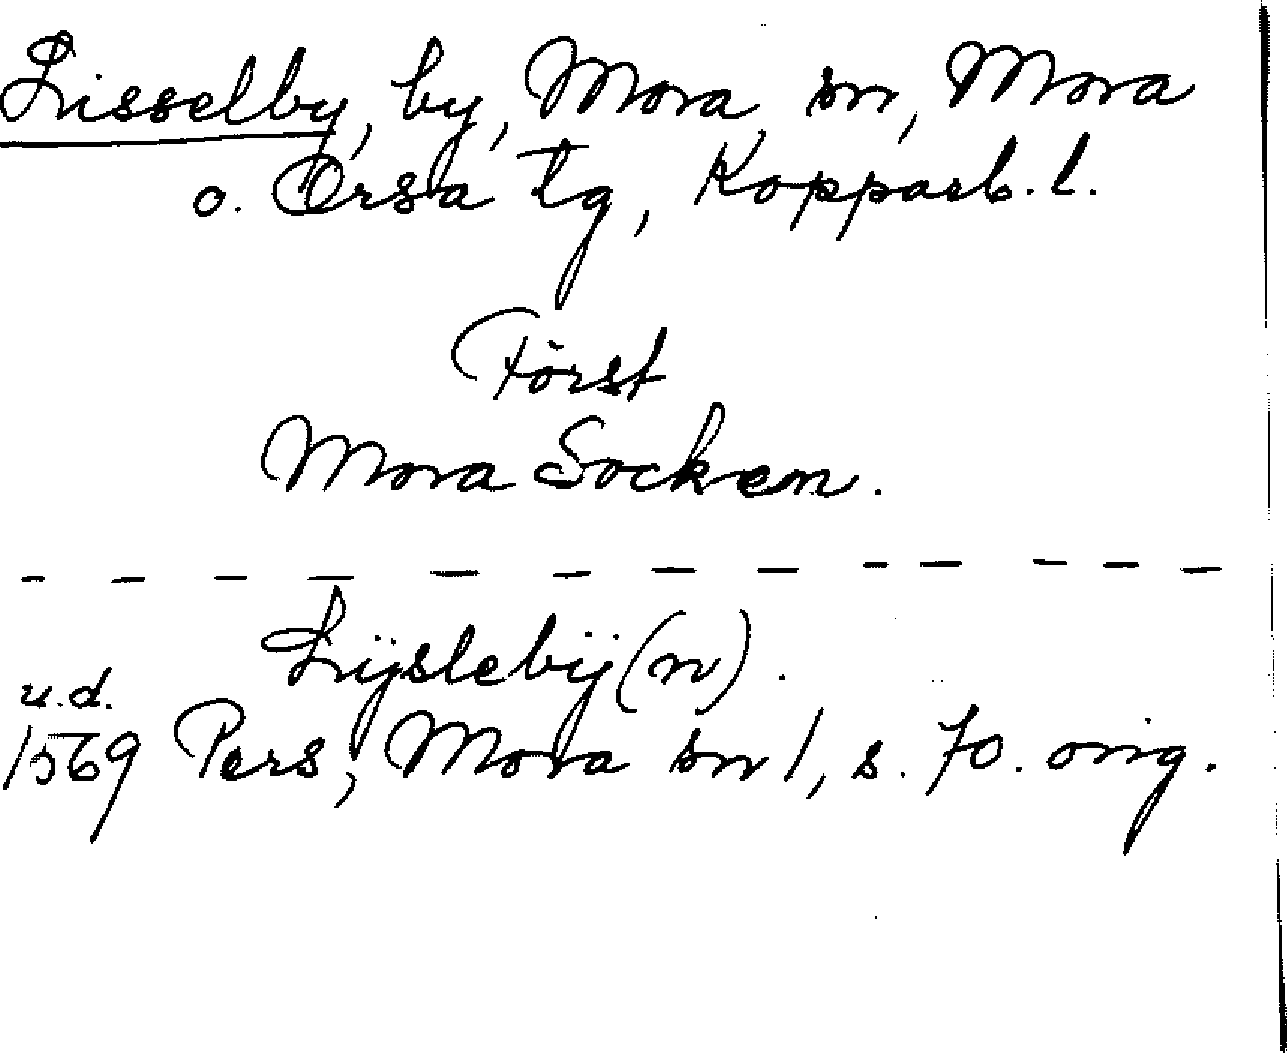 Lisselby, by, Mora sn, Mora
o. Orsa tg, Kopparb. l.
Först
Mora Socken.
- - - - - - - - - - - - -
Lÿslebÿ (n).
u.d.
1569 Pers, Mora sn 1, s. 70. orig.